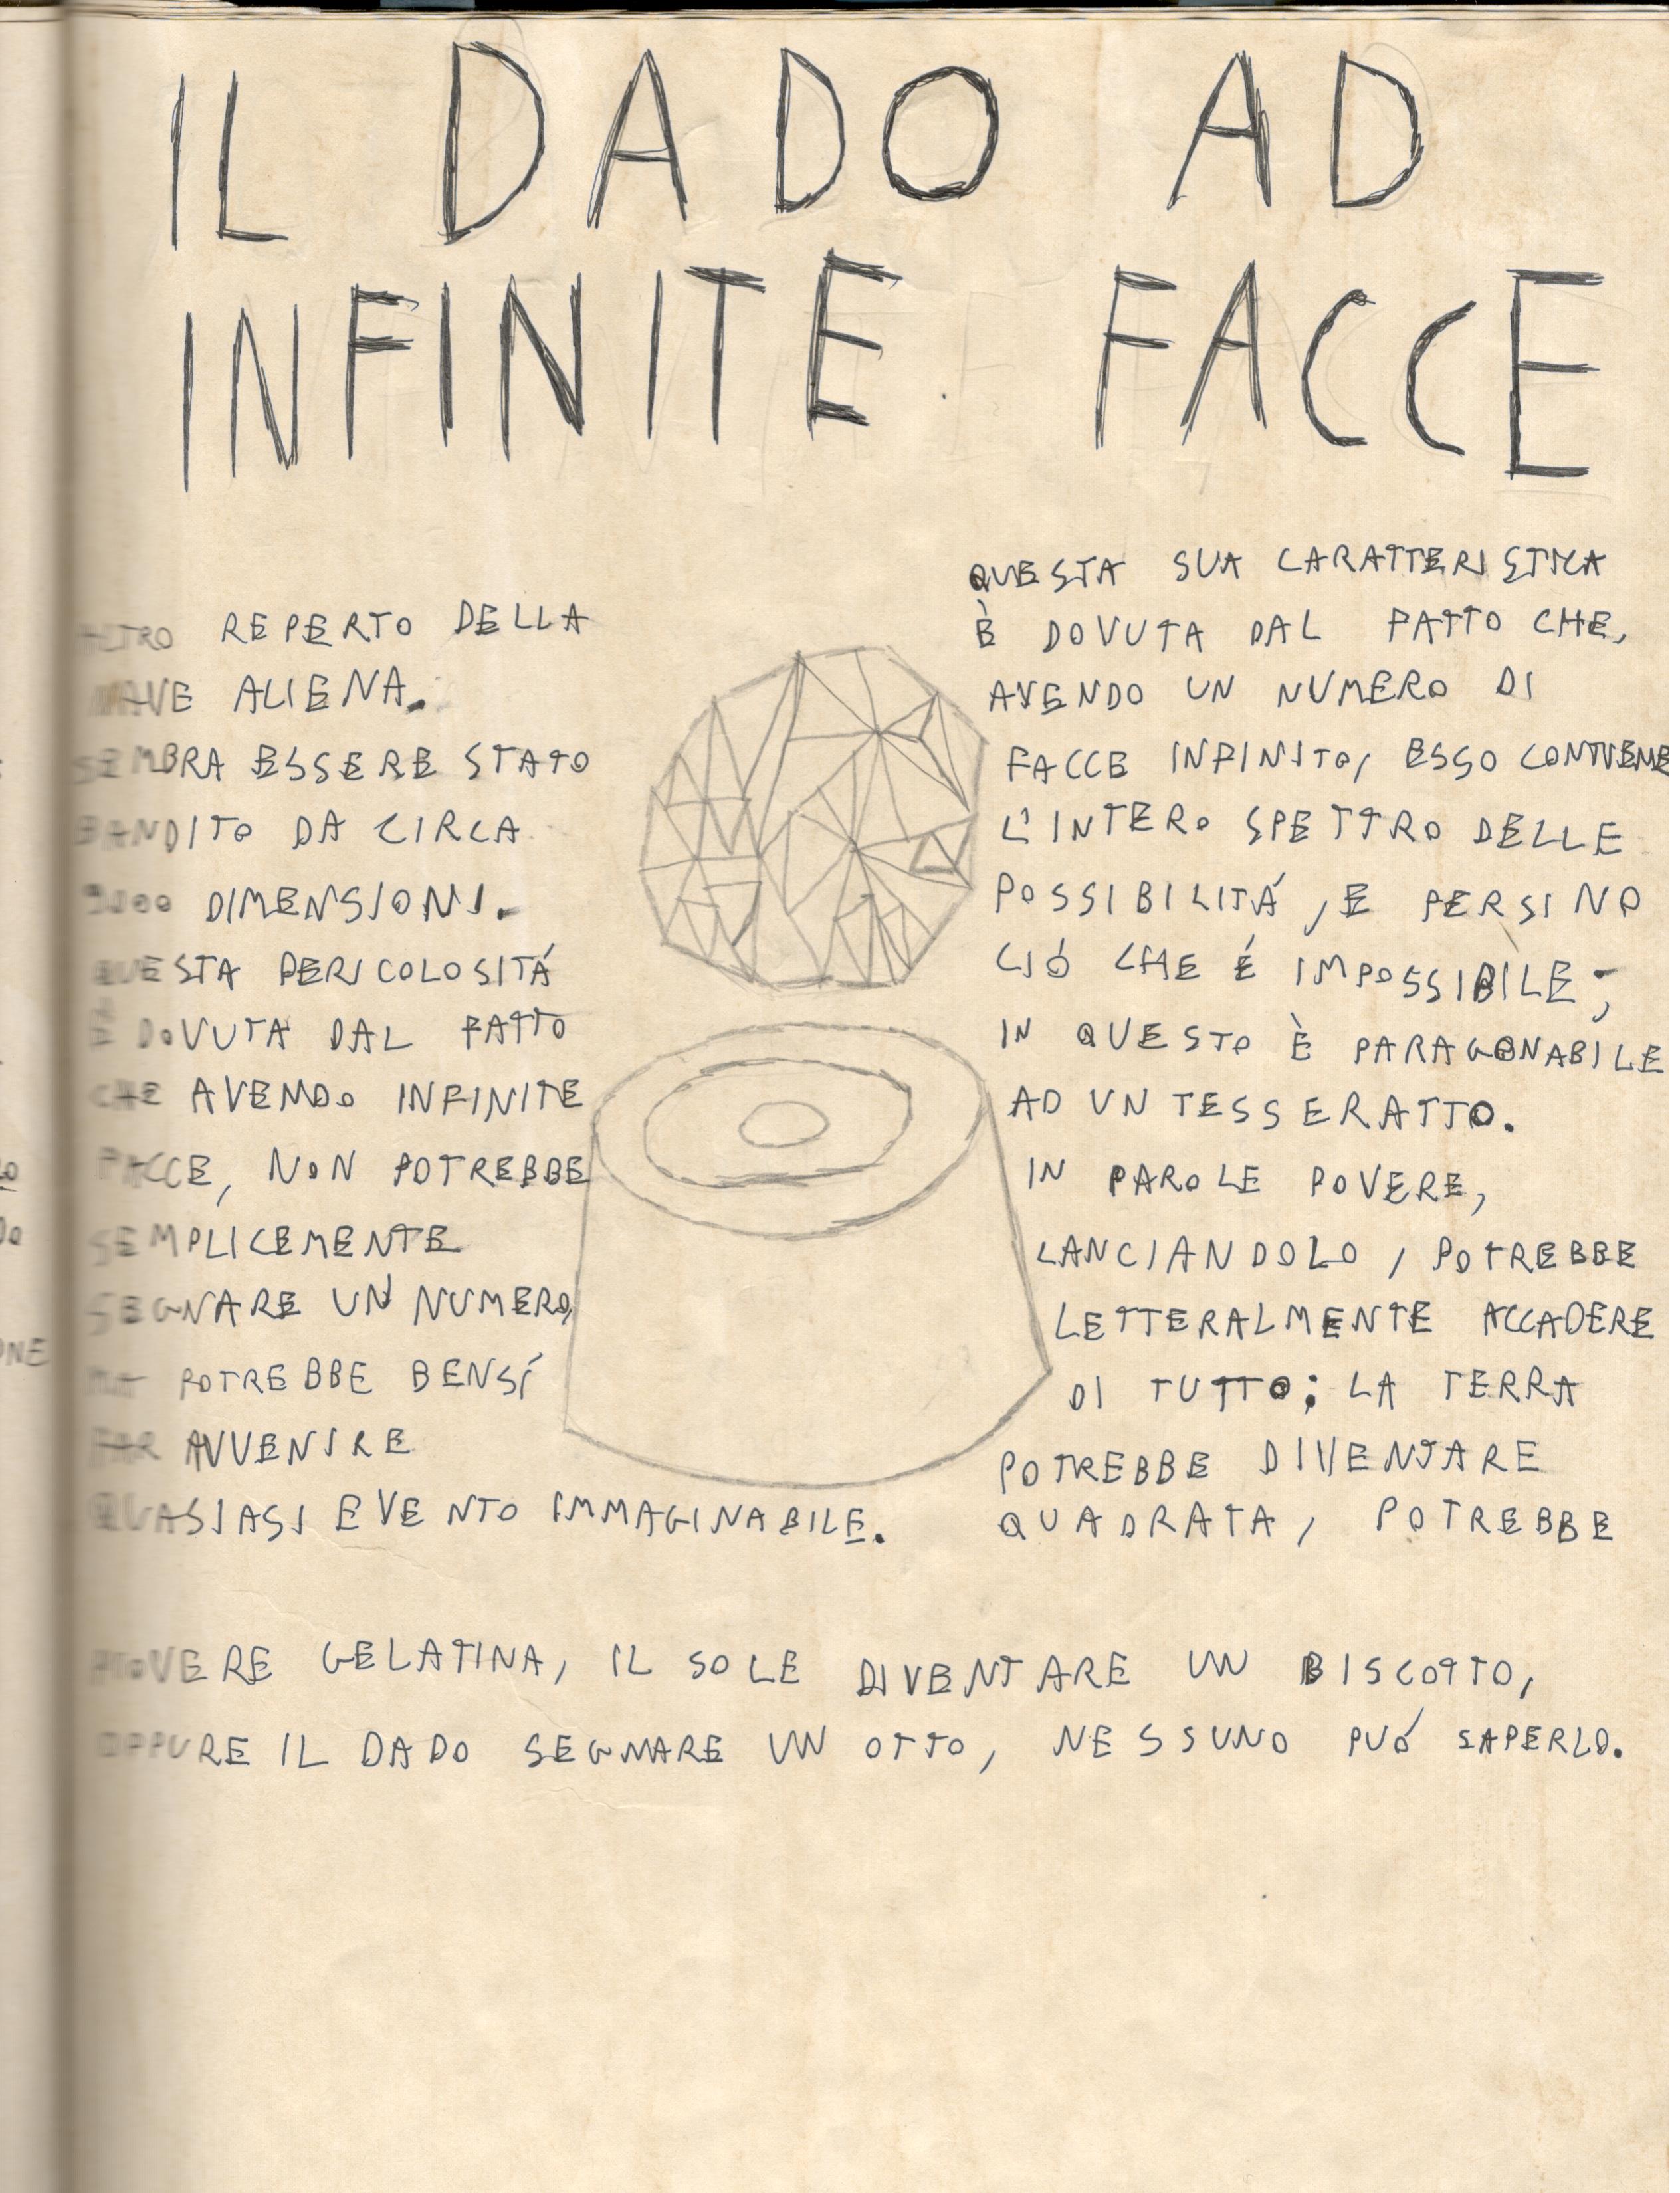 IL DADO AD
INFINITE FACCE
ALTRO REPERTO DELLA
NAVE ALIENA.
SEMBRA ESSERE STATO
BANDITO DA CIRCA
DIMENSIONI.
QUESTA PERICOLOSITÁ
È DOVUTA DAL FATTO
CHE AVENDO INFINITE
FACCE, NON POTREBBE
SEMPLICEMENTE
SEGNARE UN NUMERO,
MA POTREBBE BENSÍ
FAR AVVENIRE
QUASIASI EVENTO IMMAGINABILE.
QUESTA SUA CARATTERISTICA
È DOVUTA DAL FATTO CHE,
AVENDO UN NUMERO DI
FACCE INFINITO, ESSO CONTIENE
L'INTERO SPETTRO DELLE
POSSIBILITÁ, E PERSINO
CIÓ CHE É IMPOSSIBILE;
IN QUESTO È PARAGONABILE
AD UN TESSERATTO.
IN PAROLE POVERE,
LANCIANDOLO, POTREBBE
LETTERALMENTE ACCADERE
DI TUTTO: LA TERRA
POTREBBE DIVENTARE
QUADRATA, POTREBBE
PIOVERE GELATINA, IL SOLE DIVENTARE UN BISCOTTO,
OPPURE IL DADO SEGNARE UN OTTO, NESSUNO PUÓ SAPERLO.